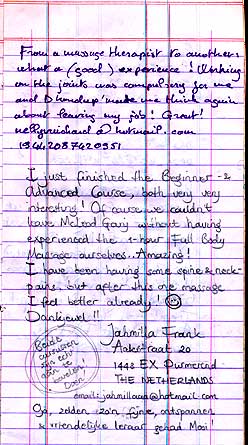 From a massage therapist to another
what a (good) experience! Working
on the joints was compulsory for me
and made me think again
about leaving my job! Great!
@hotmail.com

I just finished the Beginner - &
Advanced Course, both very very
interesting! Of course we couldn't
leave McLeod Ganj without having
experienced the 1-hour Full Body
Massage ourselves. Amazing!
I have been having some spine & neck-
pains, but after this one massage
I feel better already! ☺
Dankjewel!!
Jahmilla Frank
Aakerstraat 20
1448 EX Purmerend
THE NETHERLANDS
email: jahmillaaa@hotmail.com
Beide
cursussen
zijn echt
aan te
bevelen!
Doen!
Ga, zelden zo'n fijne, ontspannen
& vriendelijke leraar gehad. Mooi!